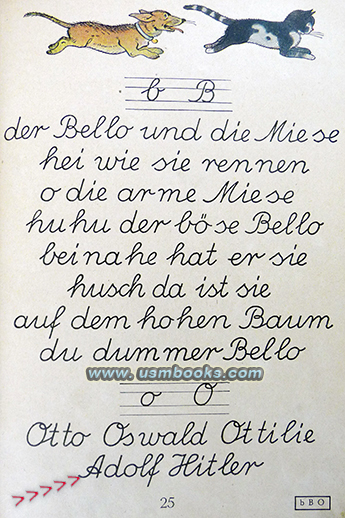 b B
der Bello und die Miese
hei wie sie rennen
o die arme Miese
huhu der böse Bello
beinahe hat er sie
husch da ist sie
auf dem hohen Baum
du dummer Bello
www.usmbooks.com
o O
Otto Oswald Ottilie
>>>>> Adolf Hitler
25
b B O